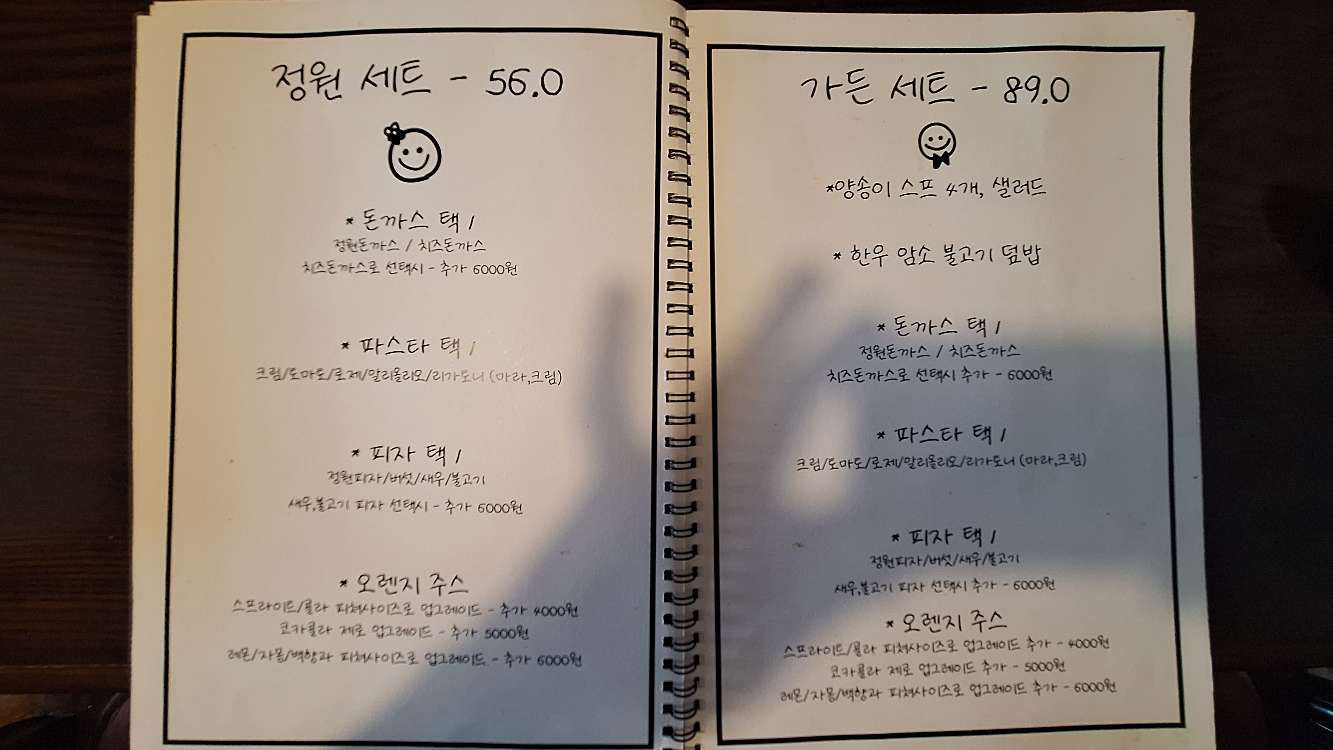 정원 세트 - 56.0
* 돈까스 택 1
정원돈까스 / 치즈돈까스
치즈돈까스로 선택시 - 추가 6000원
* 파스타 택 1
크림/토마토/로제/알리올리오/리가토니 (마라,크림)
* 피자 택 1
정원피자/버섯/새우/불고기
새우,불고기 피자 선택시 - 추가 6000원
* 오렌지 주스
스프라이트/콜라 피쳐사이즈로 업그레이드 - 추가 4000원
코카콜라 제로 업그레이드 - 추가 5000원
레몬/자몽/백향과 피쳐사이즈로 업그레이드 - 추가 6000원
가든 세트 - 89.0
*양송이 스프 4개, 샐러드
* 한우 암소 불고기 덮밥
* 돈까스 택 1
정원돈까스 / 치즈돈까스
치즈돈까스로 선택시 추가 - 6000원
* 파스타 택 1
크림/토마토/로제/알리올리오/리가토니 (마라,크림)
* 피자 택 1
정원피자/버섯/새우/불고기
새우,불고기 피자 선택시 추가 - 6000원
* 오렌지 주스
스프라이트/콜라 피쳐사이즈로 업그레이드 추가 - 4000원
코카콜라 제로 업그레이드 추가 - 5000원
레몬/자몽/백향과 피쳐사이즈로 업그레이드 추가 - 6000원